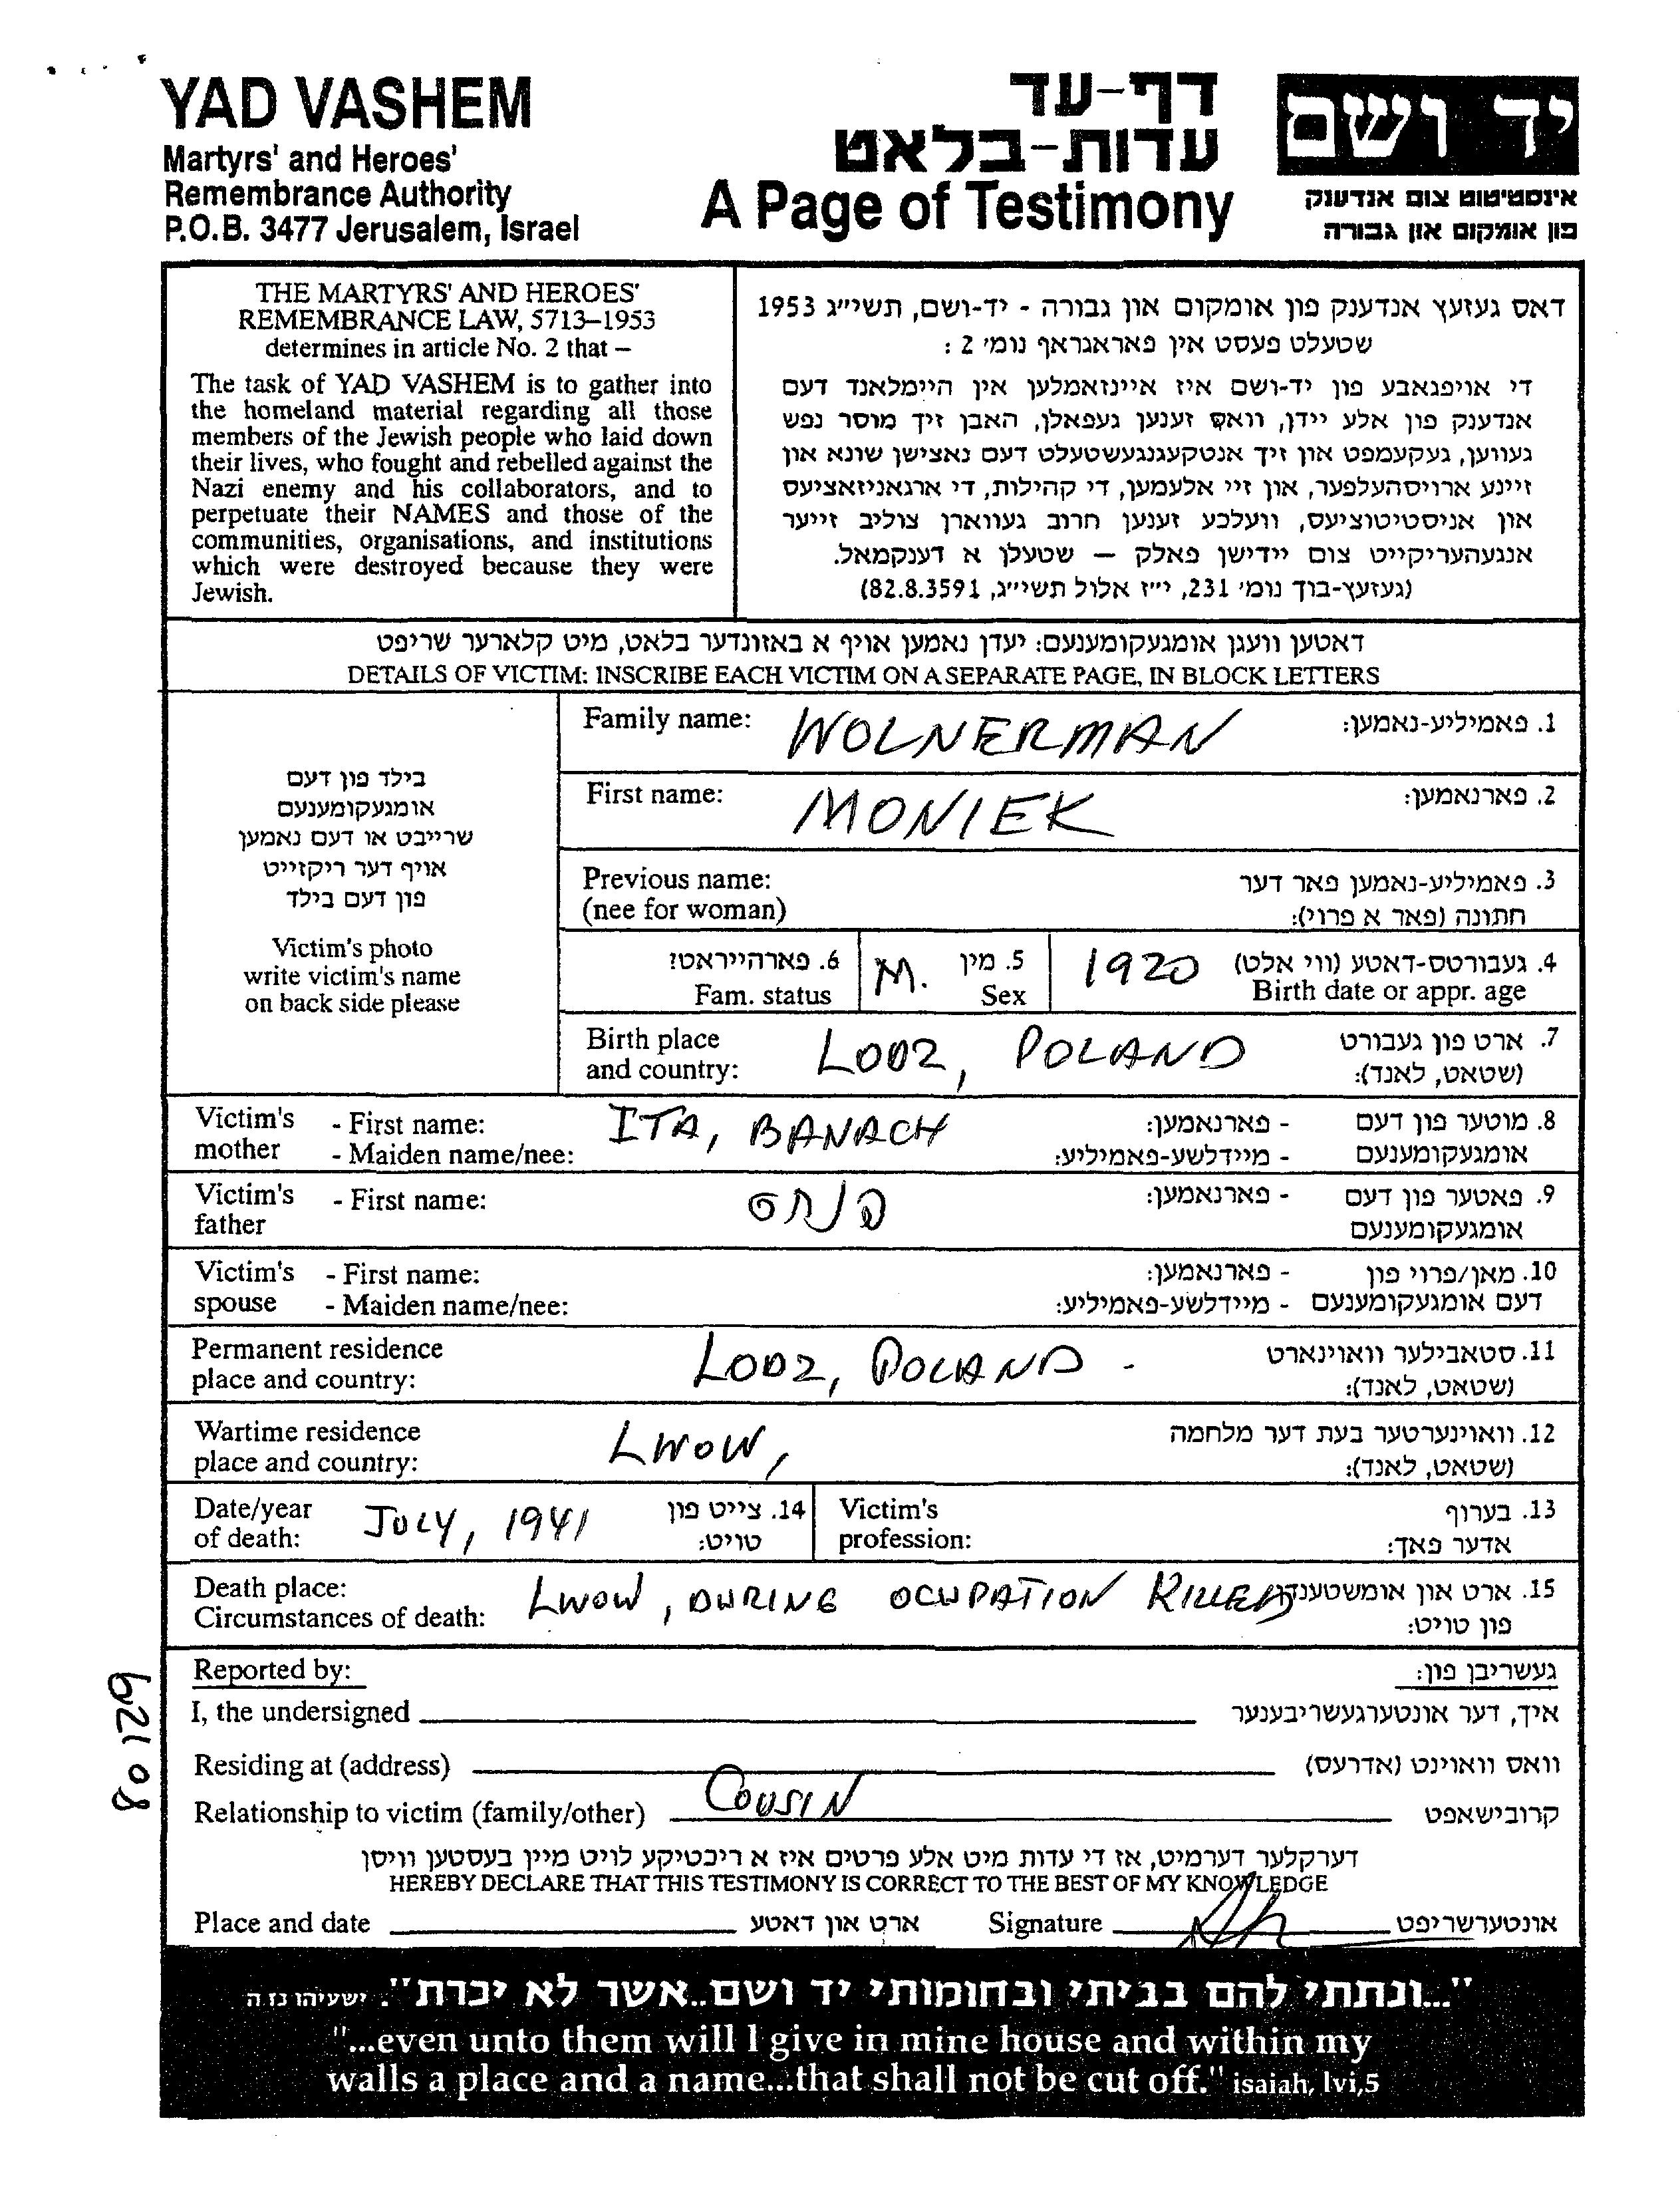 YAD VASHEM
Martyrs' and Heroes'
Remembrance Authority
P.O.B. 3477 Jerusalem, Israel
דף-עד
עדות-בלאט
A Page of Testimony
יד ושם
אינסטיטוט צום אנדענק
פון אומקום און גבורה
THE MARTYRS' AND HEROES'
REMEMBRANCE LAW, 5713–1953
determines in article No. 2 that –
The task of YAD VASHEM is to gather into
the homeland material regarding all those
members of the Jewish people who laid down
their lives, who fought and rebelled against the
Nazi enemy and his collaborators, and to
perpetuate their NAMES and those of the
communities, organisations, and institutions
which were destroyed because they were
Jewish.
דאס געזעץ אנדענק פון אומקום און גבורה - יד-ושם, תשי״ג 1953
שטעלט פעסט אין פאראגראף נומ׳ 2 :
די אויפגאבע פון יד-ושם איז איינזאמלען אין היימלאנד דעם
אנדענק פון אלע יידן, וואס זענען געפאלן, האבן זיך מוסר נפש
געווען, געקעמפט און זיך אנטקעגנגעשטעלט דעם נאצישן שונא און
זיינע ארויסהעלפער, און זיי אלעמען, די קהילות, די ארגאניזאציעס
און אניסטיטוציעס, וועלכע זענען חרוב געווארן צוליב זייער
אנגעהעריקייט צום יידישן פאלק – שטעלן א דענקמאל.
(געזעץ-בוך נומ׳ 231, י״ז אלול תשי״ג, 82.8.3591)
דאטען וועגן אומגעקומענעם: יעדן נאמען אויף א באזונדער בלאט, מיט קלארער שריפט
DETAILS OF VICTIM: INSCRIBE EACH VICTIM ON A SEPARATE PAGE, IN BLOCK LETTERS
בילד פון דעם
אומגעקומענעם
שרייבט או דעם נאמען
אויף דער ריקזייט
פון דעם בילד
Victim's photo
write victim's name
on back side please
Family name: WOLNERMAN 1. פאמיליע-נאמען:
First name: MONIEK 2. פארנאמען:
Previous name: 3. פאמיליע-נאמען פאר דער
(nee for woman) חתונה (פאר א פרוי):
6. פארהייראט? M. 5. מין 1920 4. געבורטס-דאטע (ווי אלט)
Fam. status Sex Birth date or appr. age
Birth place LODZ, POLAND 7. ארט פון געבורט
and country: (שטאט, לאנד):
Victim's - First name: ITA, BANACH - פארנאמען: 8. מוטער פון דעם
mother - Maiden name/nee: - מיידלשע-פאמיליע: אומגעקומענעם
Victim's - First name: פנחס - פארנאמען: 9. פאטער פון דעם
father אומגעקומענעם
Victim's - First name: - פארנאמען: 10. מאן/פרוי פון
spouse - Maiden name/nee: - מיידלשע-פאמיליע: דעם אומגעקומענעם
Permanent residence LODZ, POLAND - 11. סטאבילער וואוינארט
place and country: (שטאט, לאנד):
Wartime residence LWOW, 12. וואוינערטער בעת דער מלחמה
place and country: (שטאט, לאנד):
Date/year JULY, 1941 14. צייט פון Victim's 13. בערוף
of death: טויט: profession: אדער פאך:
Death place: LWOW, DURING OCUPATION KILLED 15. ארט און
Circumstances of death: פון טויט:
Reported by: געשריבן פון:
I, the undersigned איך, דער אונטערגעשריבענער
Residing at (address) וואס וואוינט (אדרעס)
Relationship to victim (family/other) COUSIN קרובישאפט
דערקלער דערמיט, אז די עדות מיט אלע פרטים איז א ריכטיקע לויט מיין בעסטען וויסן
HEREBY DECLARE THAT THIS TESTIMONY IS CORRECT TO THE BEST OF MY KNOWLEDGE
Place and date ארט און דאטע Signature אונטערשריפט
"...ונתתי להם בביתי ובחומותי יד ושם..אשר לא יכרת". ישעיהו נז ה
"...even unto them will I give in mine house and within my
walls a place and a name...that shall not be cut off." isaiah, lvi,5